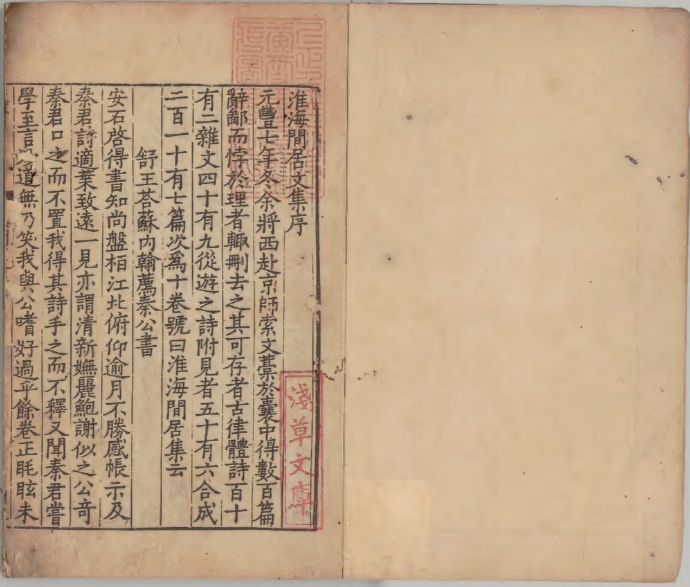 淮海閒居文集序
元豐七年冬余將西赴京師索文藁於囊中得數百篇
辭鄙而悖於理者輒刪去之其可存者古律體詩百十
有二雜文四十有九從遊之詩附見者五十有六合成
二百一十有七篇次爲十卷號曰淮海閒居集云
舒王荅蘇內翰薦秦公書
安石啓得書知尚盤桓江北俯仰逾月不勝感悵示及
秦君詩適葉致遠一見亦謂清新嫵麗鮑謝似之公奇
秦君口之而不置我得其詩手之而不釋又聞秦君嘗
學至言妙道無乃笑我與公嗜好過乎餘卷正眊眩未
淺草文庫